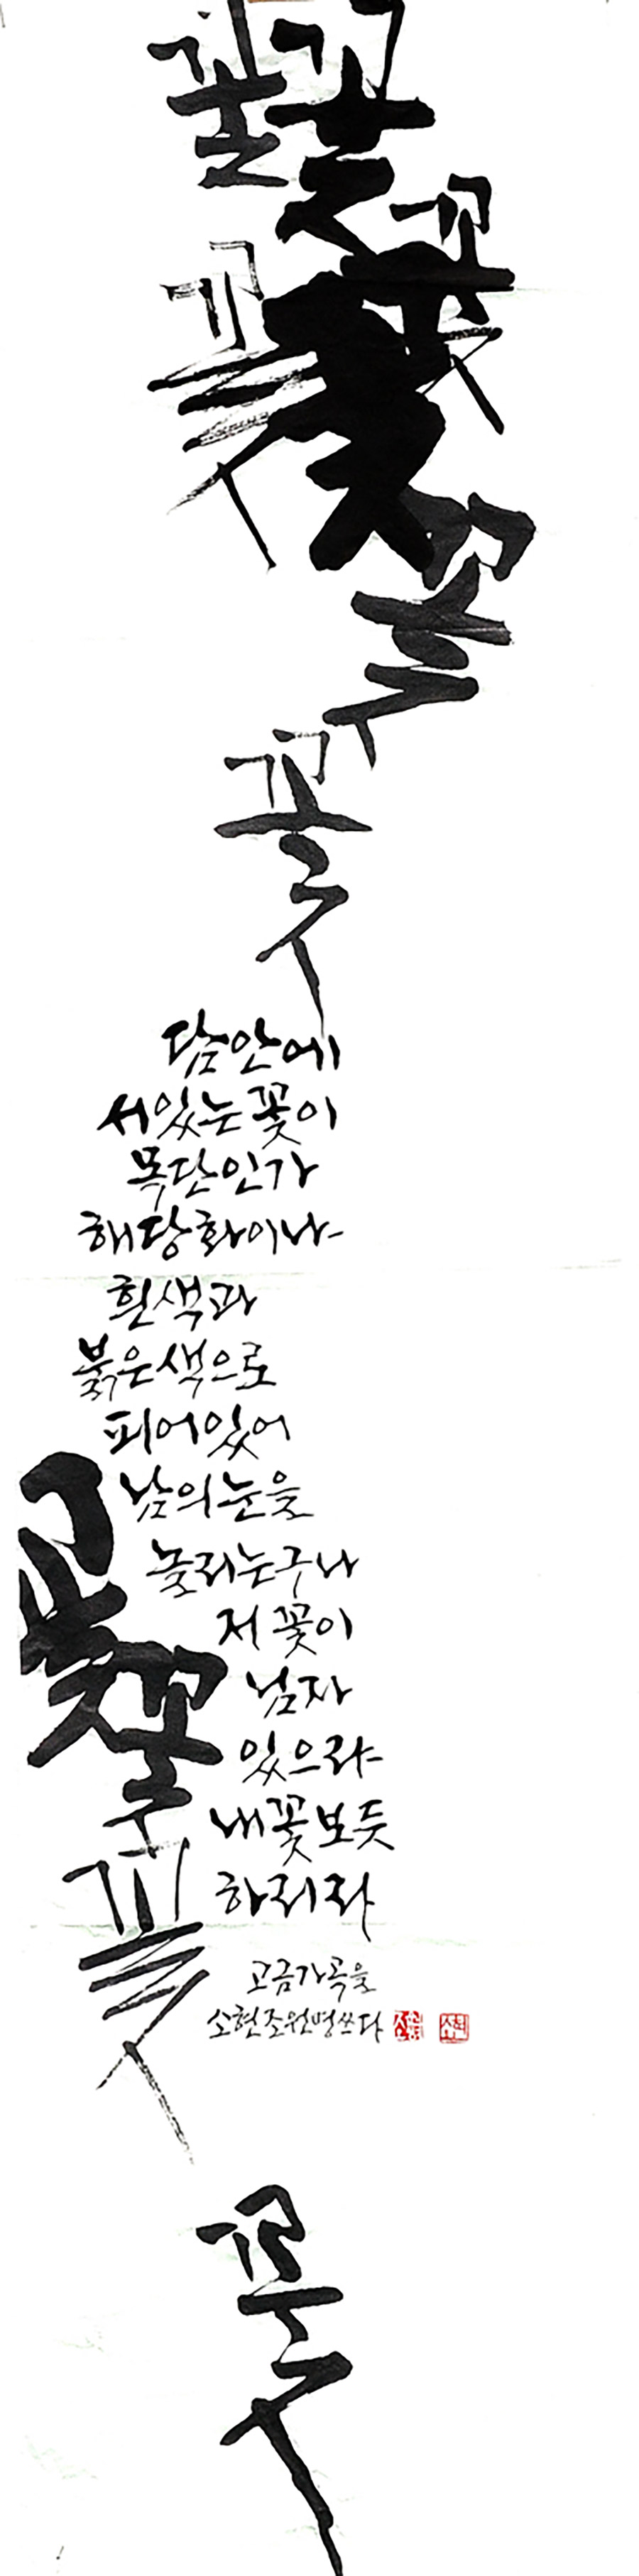 꽃
꽃
꽃
꽃
꽃
꽃
꽃
담안에
서있는꽃이
목단인가
해당화이냐
흰색과
붉은색으로
피어있어
남의눈을
놀리는구나
저 꽃이
님자
있으랴
내꽃보듯
하리라
고금가곡을
소현조원명쓰다
꽃
꽃
꽃
꽃